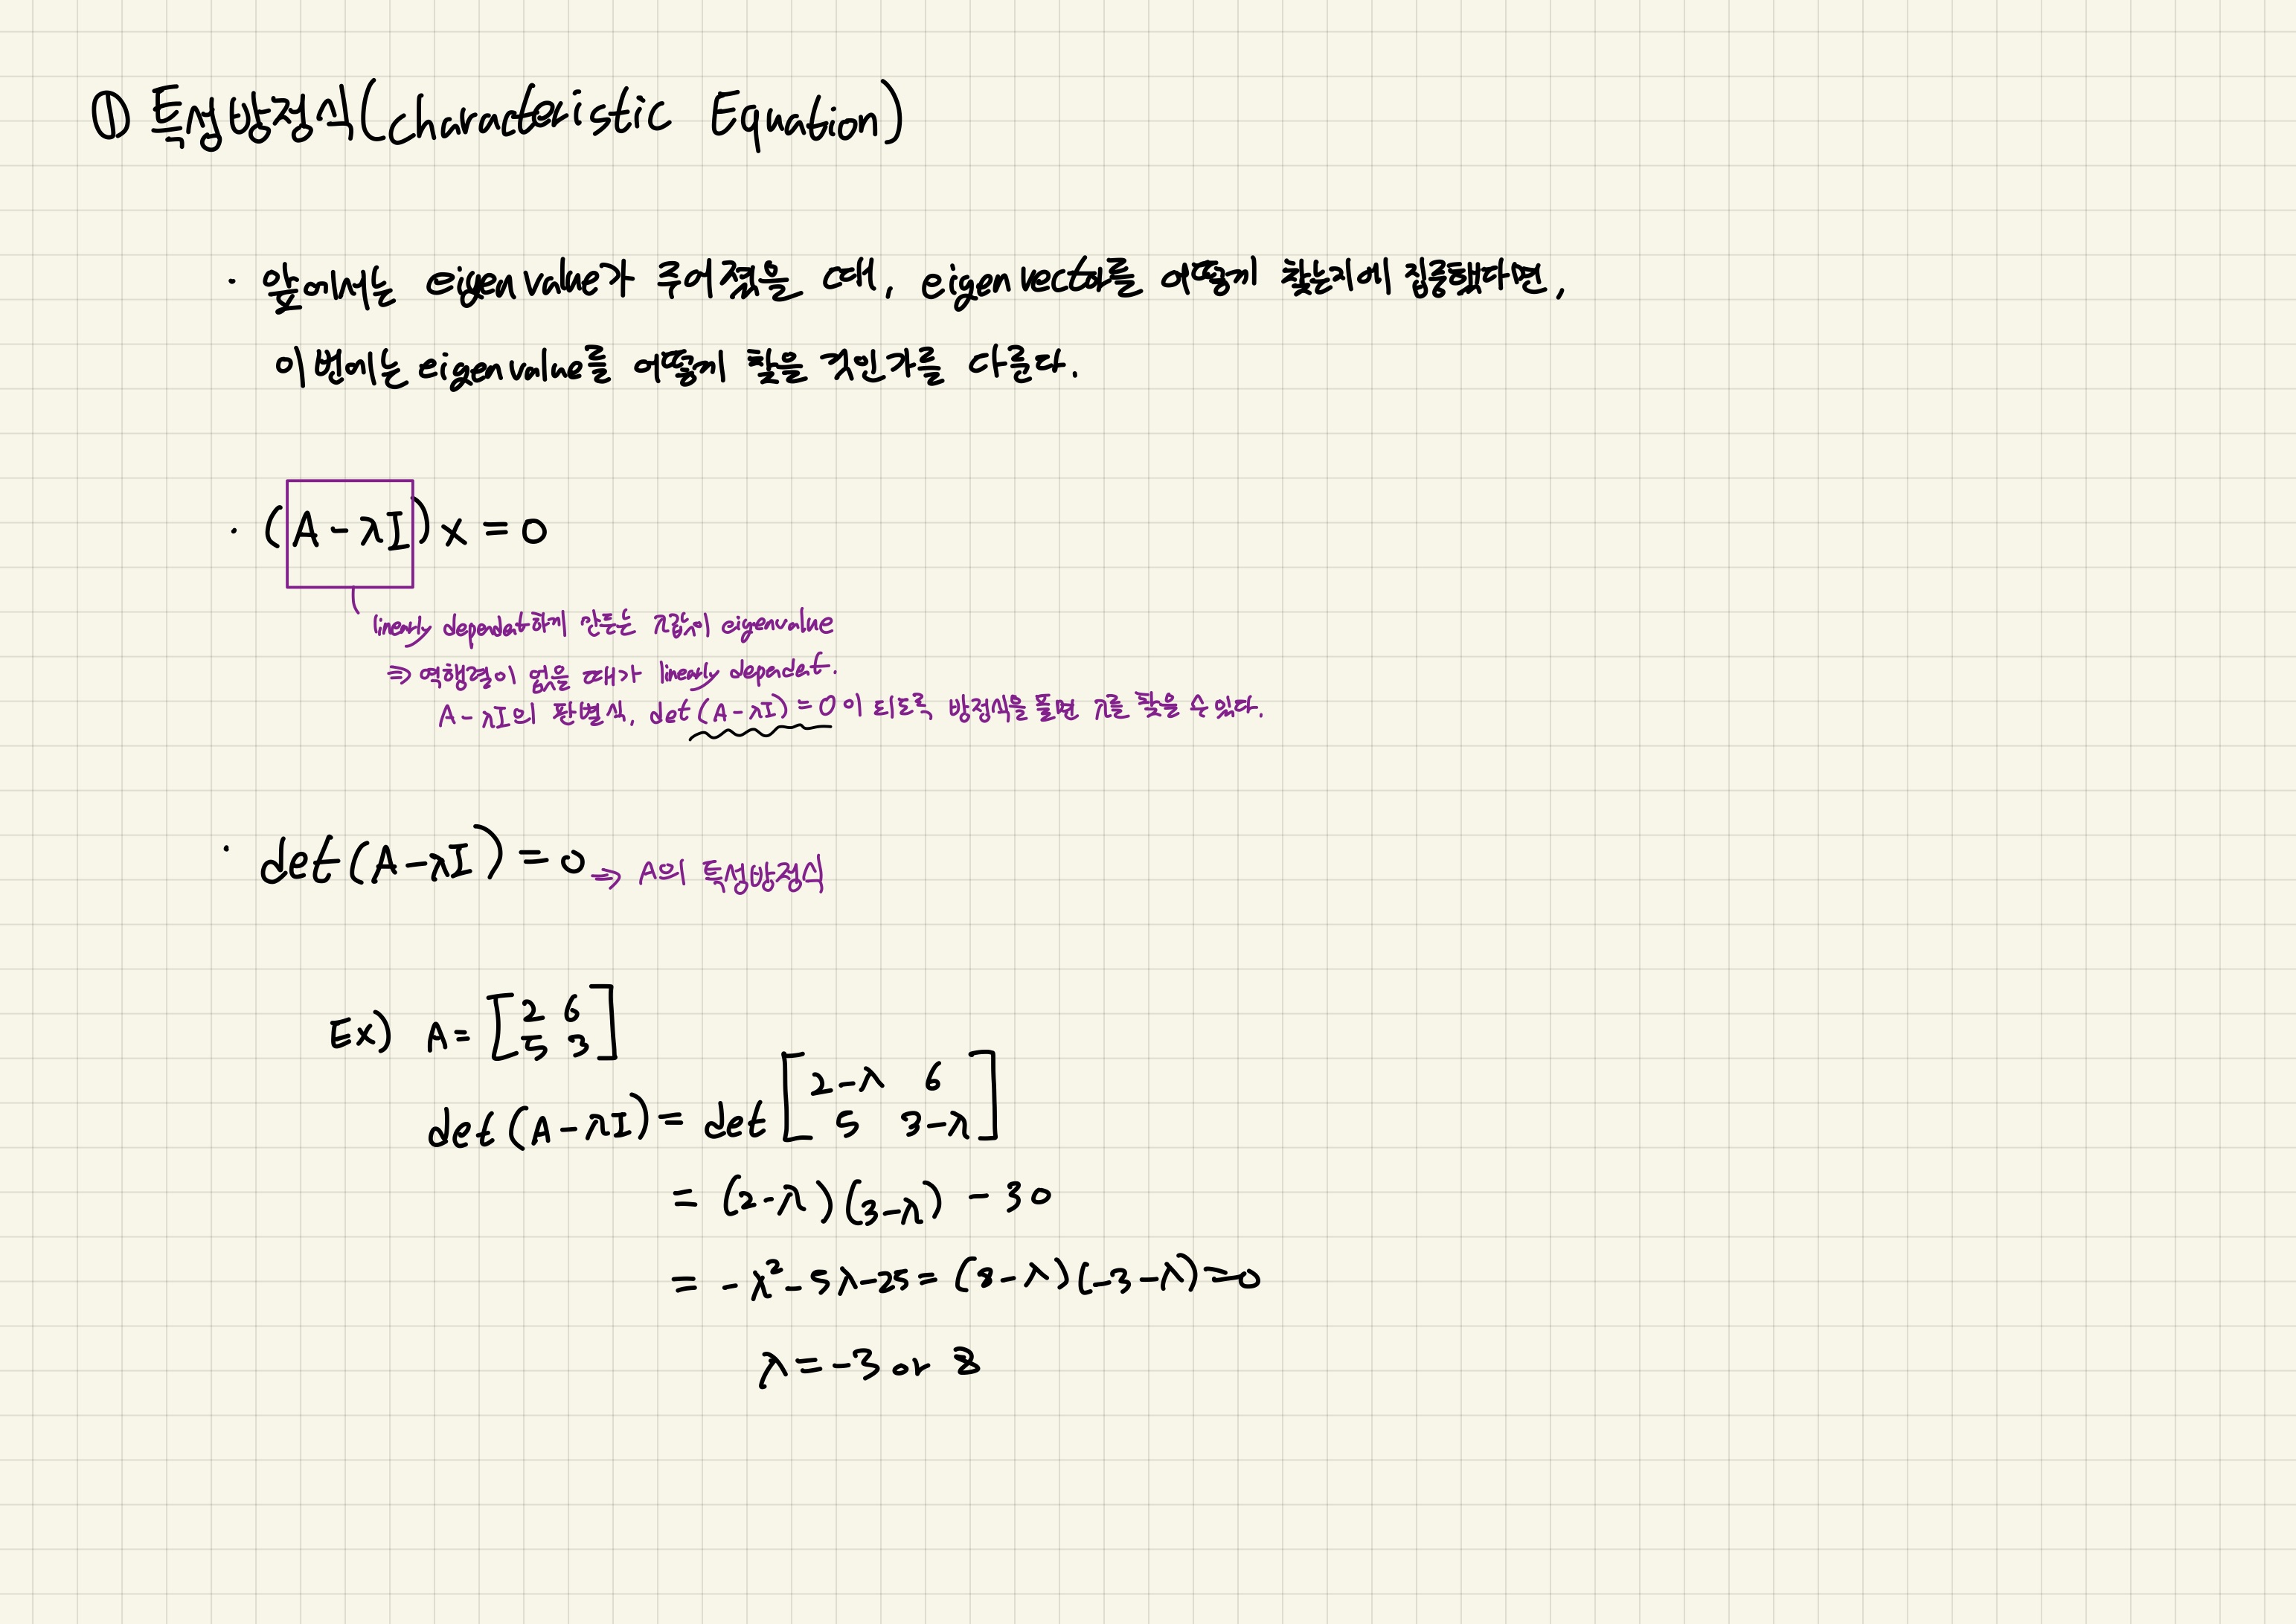 ① 특성방정식(characteristic Equation)
· 앞에서는 eigen value가 주어졌을 때, eigen vector를 어떻게 찾는지에 집중했다면,
이번에는 eigen value를 어떻게 찾을 것인가를 다룬다.
· (A - λI)x = 0
linearly dependet하게 만드는 λ값이 eigenvalue
⇒ 역행렬이 없을 때가 linearly dependet.
A-λI의 판별식, det(A-λI)=0이 되도록 방정식을 풀면 λ를 찾을 수 있다.
· det(A-λI)=0 ⇒ A의 특성방정식
Ex) A= [2 6
5 3]
det(A-λI) = det [2-λ 6
5 3-λ]
= (2-λ)(3-λ) - 30
= -λ²-5λ-25= (8-λ)(-3-λ)=0
λ=-3 or 8